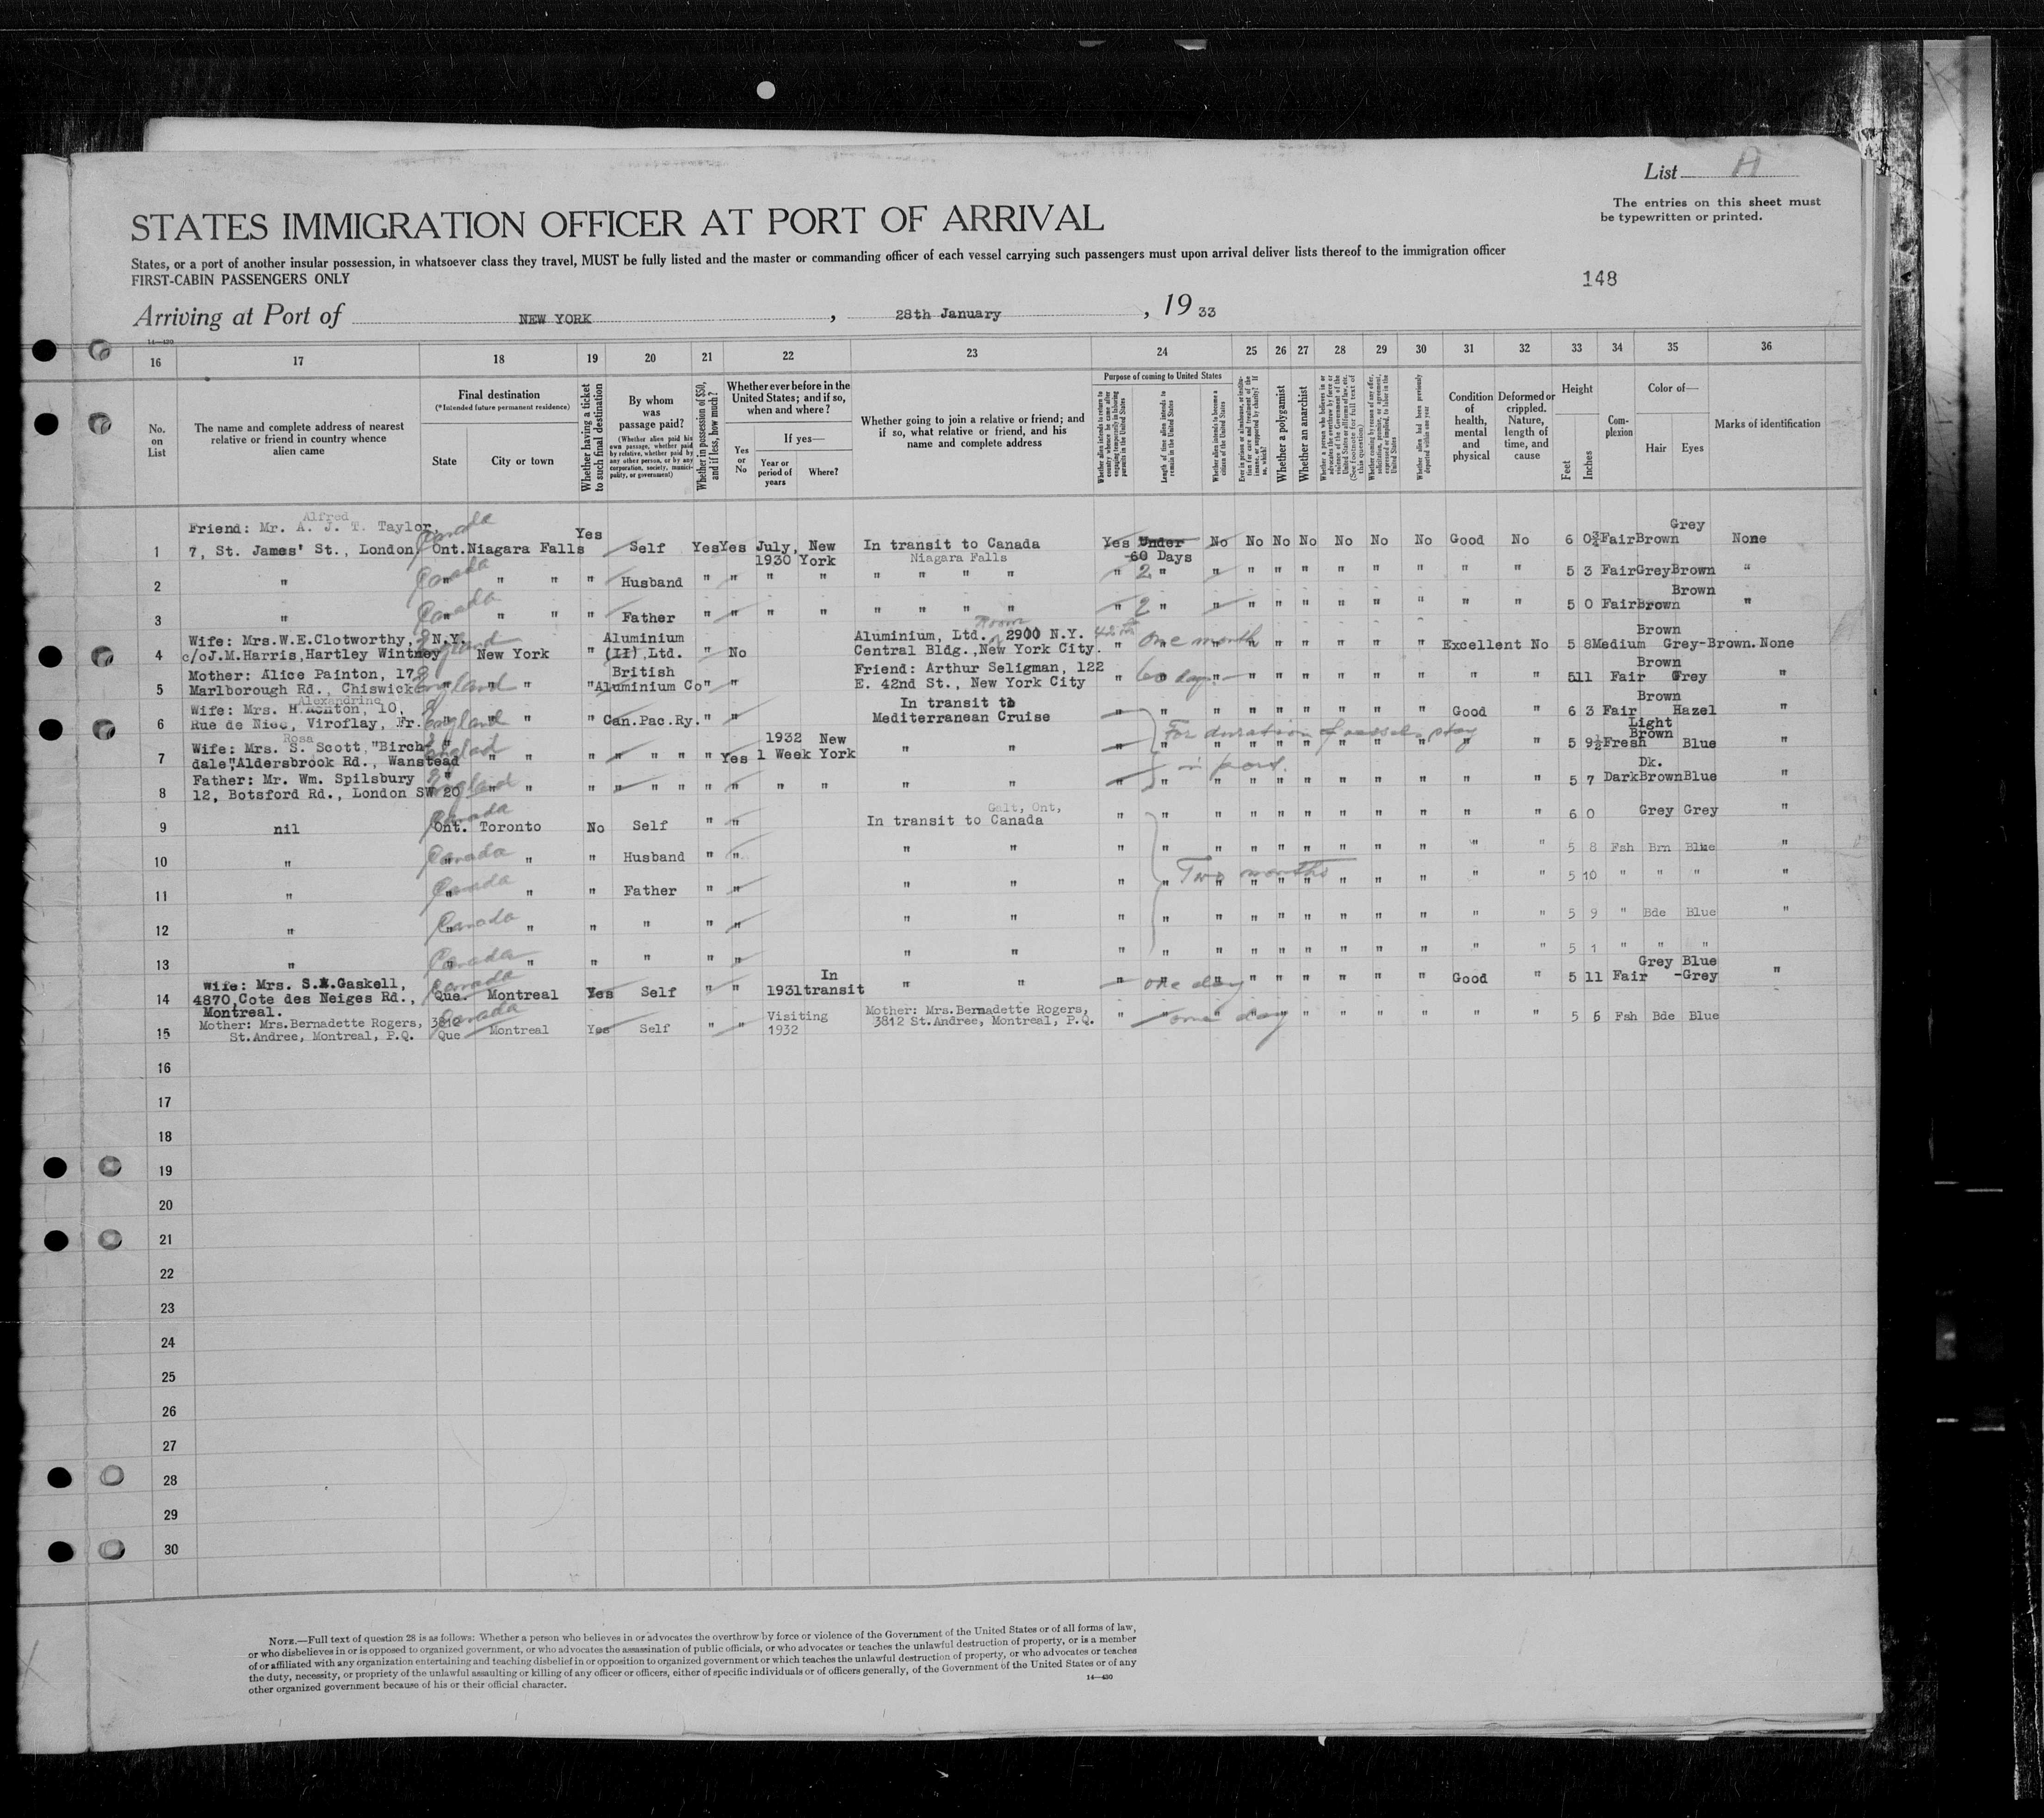 List H
The entries on this sheet must
be typewritten or printed.
STATES IMMIGRATION OFFICER AT PORT OF ARRIVAL
States, or a port of another insular possession, in whatsoever class they travel, MUST be fully listed and the master or commanding officer of each vessel carrying such passengers must upon arrival deliver lists thereof to the immigration officer
FIRST-CABIN PASSENGERS ONLY
148
Arriving at Port of NEW YORK, 28th January, 1933
14—430
16 17 18 19 20 21 22 23 24 25 26 27 28 29 30 31 32 33 34 35 36
No. on List
The name and complete address of nearest relative or friend in country whence alien came
Final destination
(*Intended future permanent residence)
State City or town
Whether having a ticket to such final destination
By whom was passage paid?
(Whether alien paid his own passage, whether paid by relative, whether paid by any other person, or by any corporation, society, municipality, or government)
Whether in possession of $50, and if less, how much?
Whether ever before in the United States; and if so, when and where?
Yes or No
If yes—
Year or period of years
Where?
Whether going to join a relative or friend; and if so, what relative or friend, and his name and complete address
Purpose of coming to United States
Whether alien intends to return to country whence he came after engaging temporarily in laboring pursuits in the United States
Length of time alien intends to remain in the United States
Whether alien intends to become a citizen of the United States
Whether a polygamist
Whether an anarchist
Condition of health, mental and physical
Deformed or crippled. Nature, length of time, and cause
Height
Feet Inches
Complexion
Color of—
Hair Eyes
Marks of identification
1 Friend: Mr. A. J. T. Taylor, Alfred
7, St. James' St., London Canada Ont. Niagara Falls Yes Self Yes Yes July, 1930 New York In transit to Canada Niagara Falls Yes Under 60 Days No No No No No No No Good No 6 0¾ Fair Brown Grey None
2 " Canada " " " Husband " " " " " " " " " 2 " " " " " " " " " " 5 3 Fair Grey Brown "
3 " Canada " " " Father " " " " " " " " " 2 " " " " " " " " " " 5 0 Fair Brown Brown "
4 Wife: Mrs.W.E.Clotworthy,
c/o J.M.Harris, Hartley Wintney England N.Y. New York " Aluminium (II) Ltd. " No Aluminium, Ltd. Room 2900 N.Y.
Central Bldg., New York City. " one month " " " " " " Excellent No 5 8 Medium Brown Grey-Brown. None
5 Mother: Alice Painton, 17
Marlborough Rd., Chiswick England " " " British Aluminium Co " " Friend: Arthur Seligman, 122
E. 42nd St., New York City " 60 days " " " " " " " " " 5 11 Fair Brown Grey "
6 Wife: Mrs. H Achton, 10, Alexandrine
Rue de Nice, Viroflay, Fr. England " " " Can.Pac.Ry. " " In transit to
Mediterranean Cruise " " " " " " " " Good " 6 3 Fair Brown Hazel "
For duration of vessels stay in port.
7 Wife: Mrs. S. Scott, "Birch- Rosa
dale", Aldersbrook Rd., Wanstead England " " " " " " " Yes 1932 1 Week New York " " " " " " " " " " " " 5 9½ Fresh Light Brown Blue "
8 Father: Mr. Wm. Spilsbury
12, Botsford Rd., London SW 20 England " " " " " " " " " " " " " " " " " " " " " " 5 7 Dark Dk. Brown Blue "
9 nil Canada Ont. Toronto No Self " " In transit to Canada Galt, Ont, " " " " " " " " " " " 6 0 Grey Grey "
10 " Canada " " " Husband " " " " " " " " " " " " " " " 5 8 Fsh Brn Blue "
Two months
11 " Canada " " " Father " " " " " " " " " " " " " " " 5 10 " " " "
12 " Canada " " " " " " " " " " " " " " " " " " " 5 9 " Bde Blue "
13 " Canada " " " " " " " " " " " " " " " " " " " 5 1 " " "
14 Wife: Mrs. S.A.Gaskell,
4870 Cote des Neiges Rd.,
Montreal. Canada Que. Montreal Yes Self " " 1931 In transit " " " one day " " " " " " " Good " 5 11 Fair Grey Blue-Grey "
15 Mother: Mrs.Bernadette Rogers, 3812
St.Andree, Montreal, P.Q. Canada Que Montreal Yes Self " " Visiting 1932 Mother: Mrs.Bernadette Rogers,
3812 St.Andree, Montreal, P.Q. " one day " " " " " " " " 5 5 Fsh Bde Blue
16
17
18
19
20
21
22
23
24
25
26
27
28
29
30
NOTE.—Full text of question 28 is as follows: Whether a person who believes in or advocates the overthrow by force or violence of the Government of the United States or of all forms of law,
or who disbelieves in or is opposed to organized government, or who advocates the assassination of public officials, or who advocates or teaches the unlawful destruction of property, or is a member
of or affiliated with any organization entertaining and teaching disbelief in or opposition to organized government or which teaches the unlawful destruction of property, or who advocates or teaches
the duty, necessity, or propriety of the unlawful assaulting or killing of any officer or officers, either of specific individuals or of officers generally, of the Government of the United States or of any
other organized government because of his or their official character.
14—430